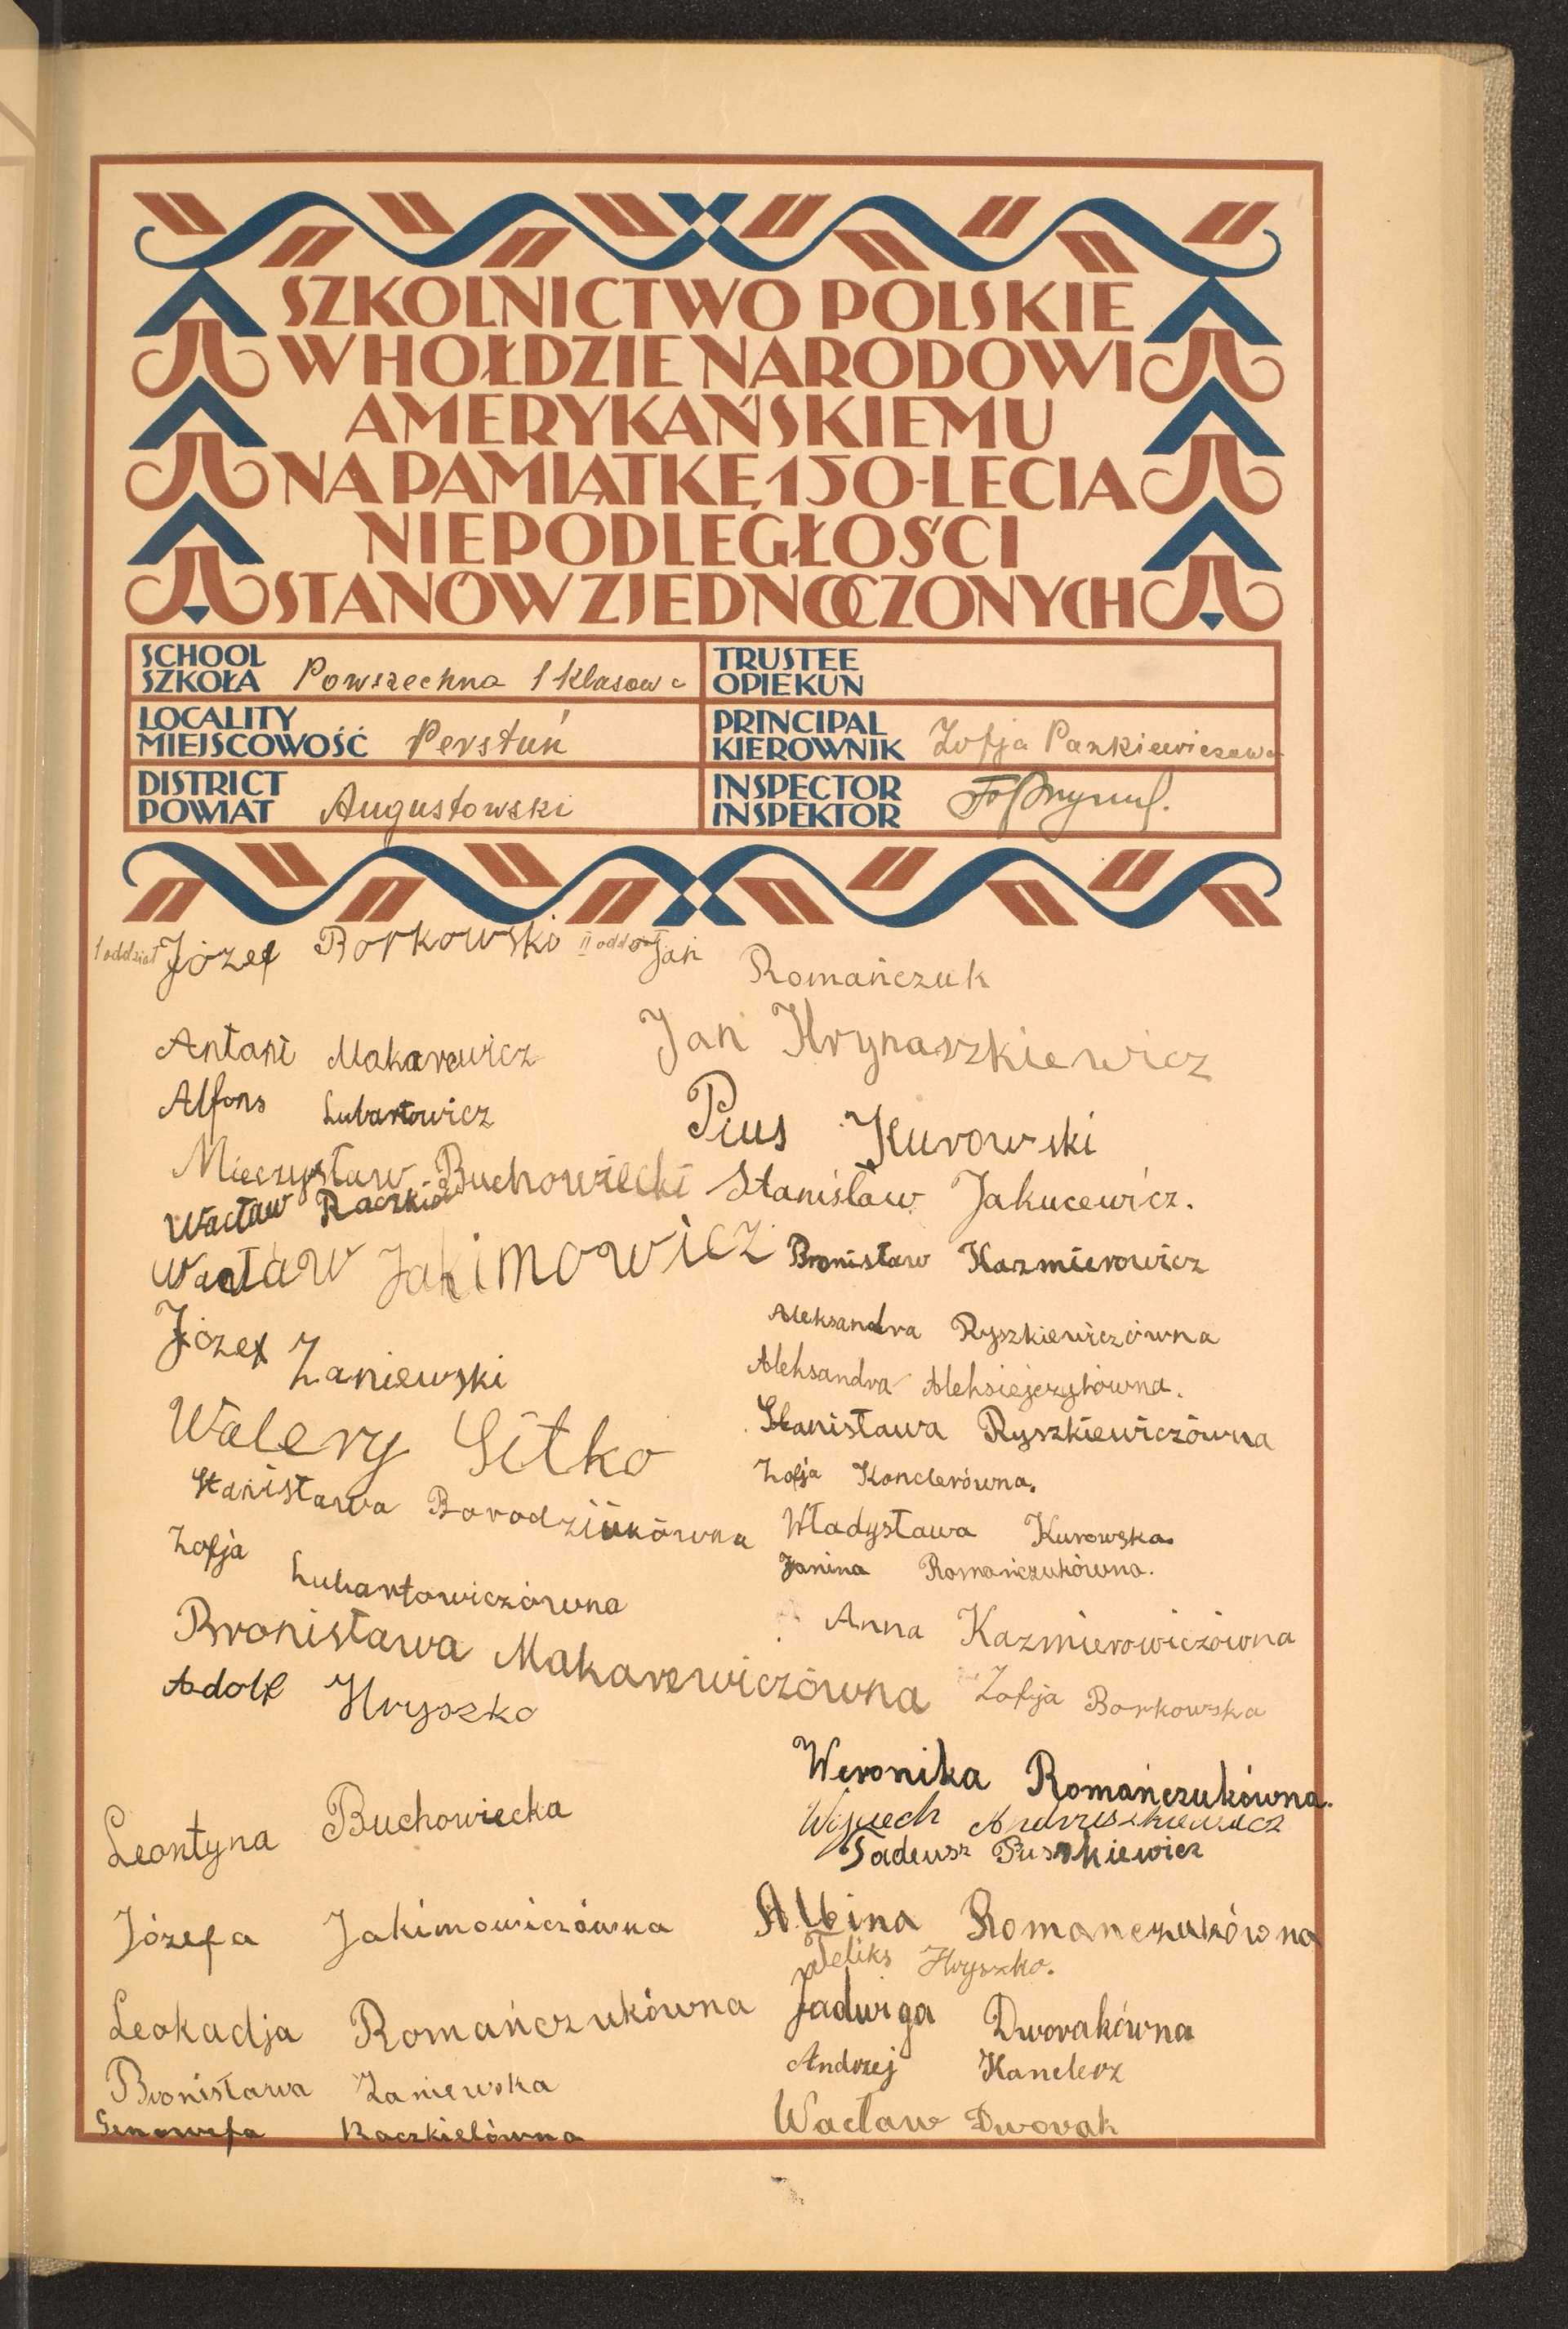 SZKOLNICTWO POLSKIE
W HOŁDZIE NARODOWI
AMERYKAŃSKIEMU
NA PAMIĄTKĘ 150-LECIA
NIEPODLEGŁOŚCI
STANÓW ZJEDNOCZONYCH
SCHOOL
SZKOŁA Powszechna 1 klasowa
TRUSTEE
OPIEKUN
LOCALITY
MIEJSCOWOŚĆ Perstuń
PRINCIPAL
KIEROWNIK Zofja Paszkiewiczowa
DISTRICT
POWIAT Augustowski
INSPECTOR
INSPEKTOR
1 oddział Józef Borkowski
Antoni Makarewicz
Alfons Lubartowicz
Mieczysław Buchowiecki
Wacław Raczkiel
Wacław Jakimowicz
Józef Zaniewski
Walery Sitko
Stanisława Borodziukówna
Zofja Lubartowiczówna
Bronisława Makarewiczówna
Adolf Hryszko
Leontyna Buchowiecka
Józefa Jakimowiczówna
Leokadja Romańczukówna
Bronisława Zaniewska
Genowefa Raczkielówna
II oddział Jan Romańczuk
Jan Hrynaszkiewicz
Pius Kurowski
Stanisław Jakucewicz.
Bronisław Kazmierowicz
Aleksandra Ryszkiewiczówna
Aleksandra Aleksiejczykówna.
Stanisława Ryszkiewiczówna
Zofja Konclerówna.
Władysława Kurowska.
Janina Romańczukówna.
Anna Kazmierowiczówna
Zofija Borkowska
Weronika Romańczukówna.
Wojciech Andruszkiewicz
Tadeusz Puszkiewicz
Albina Romanczukówna
Feliks Hryszko.
Jadwiga Dworakówna
Andrzej Kanclerz
Wacław Dworak